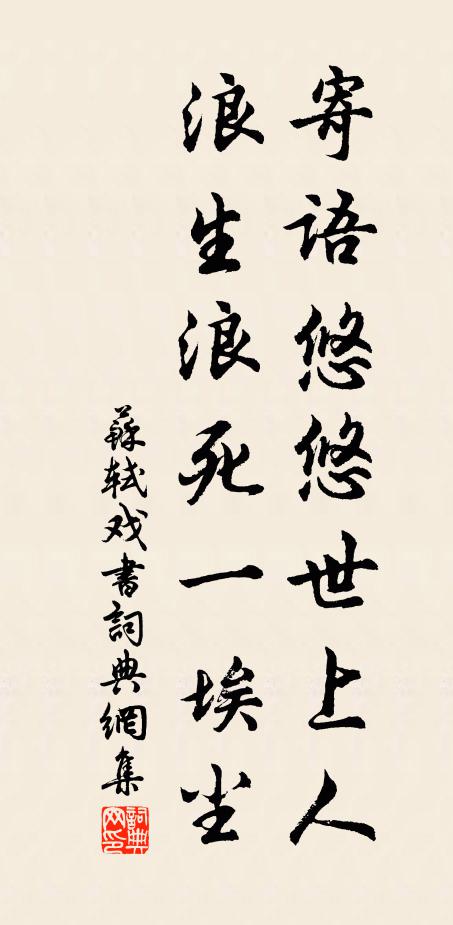 寄语悠悠世上人
浪生浪死一埃尘
蘇軾戏書詞典網集
詞典
网印